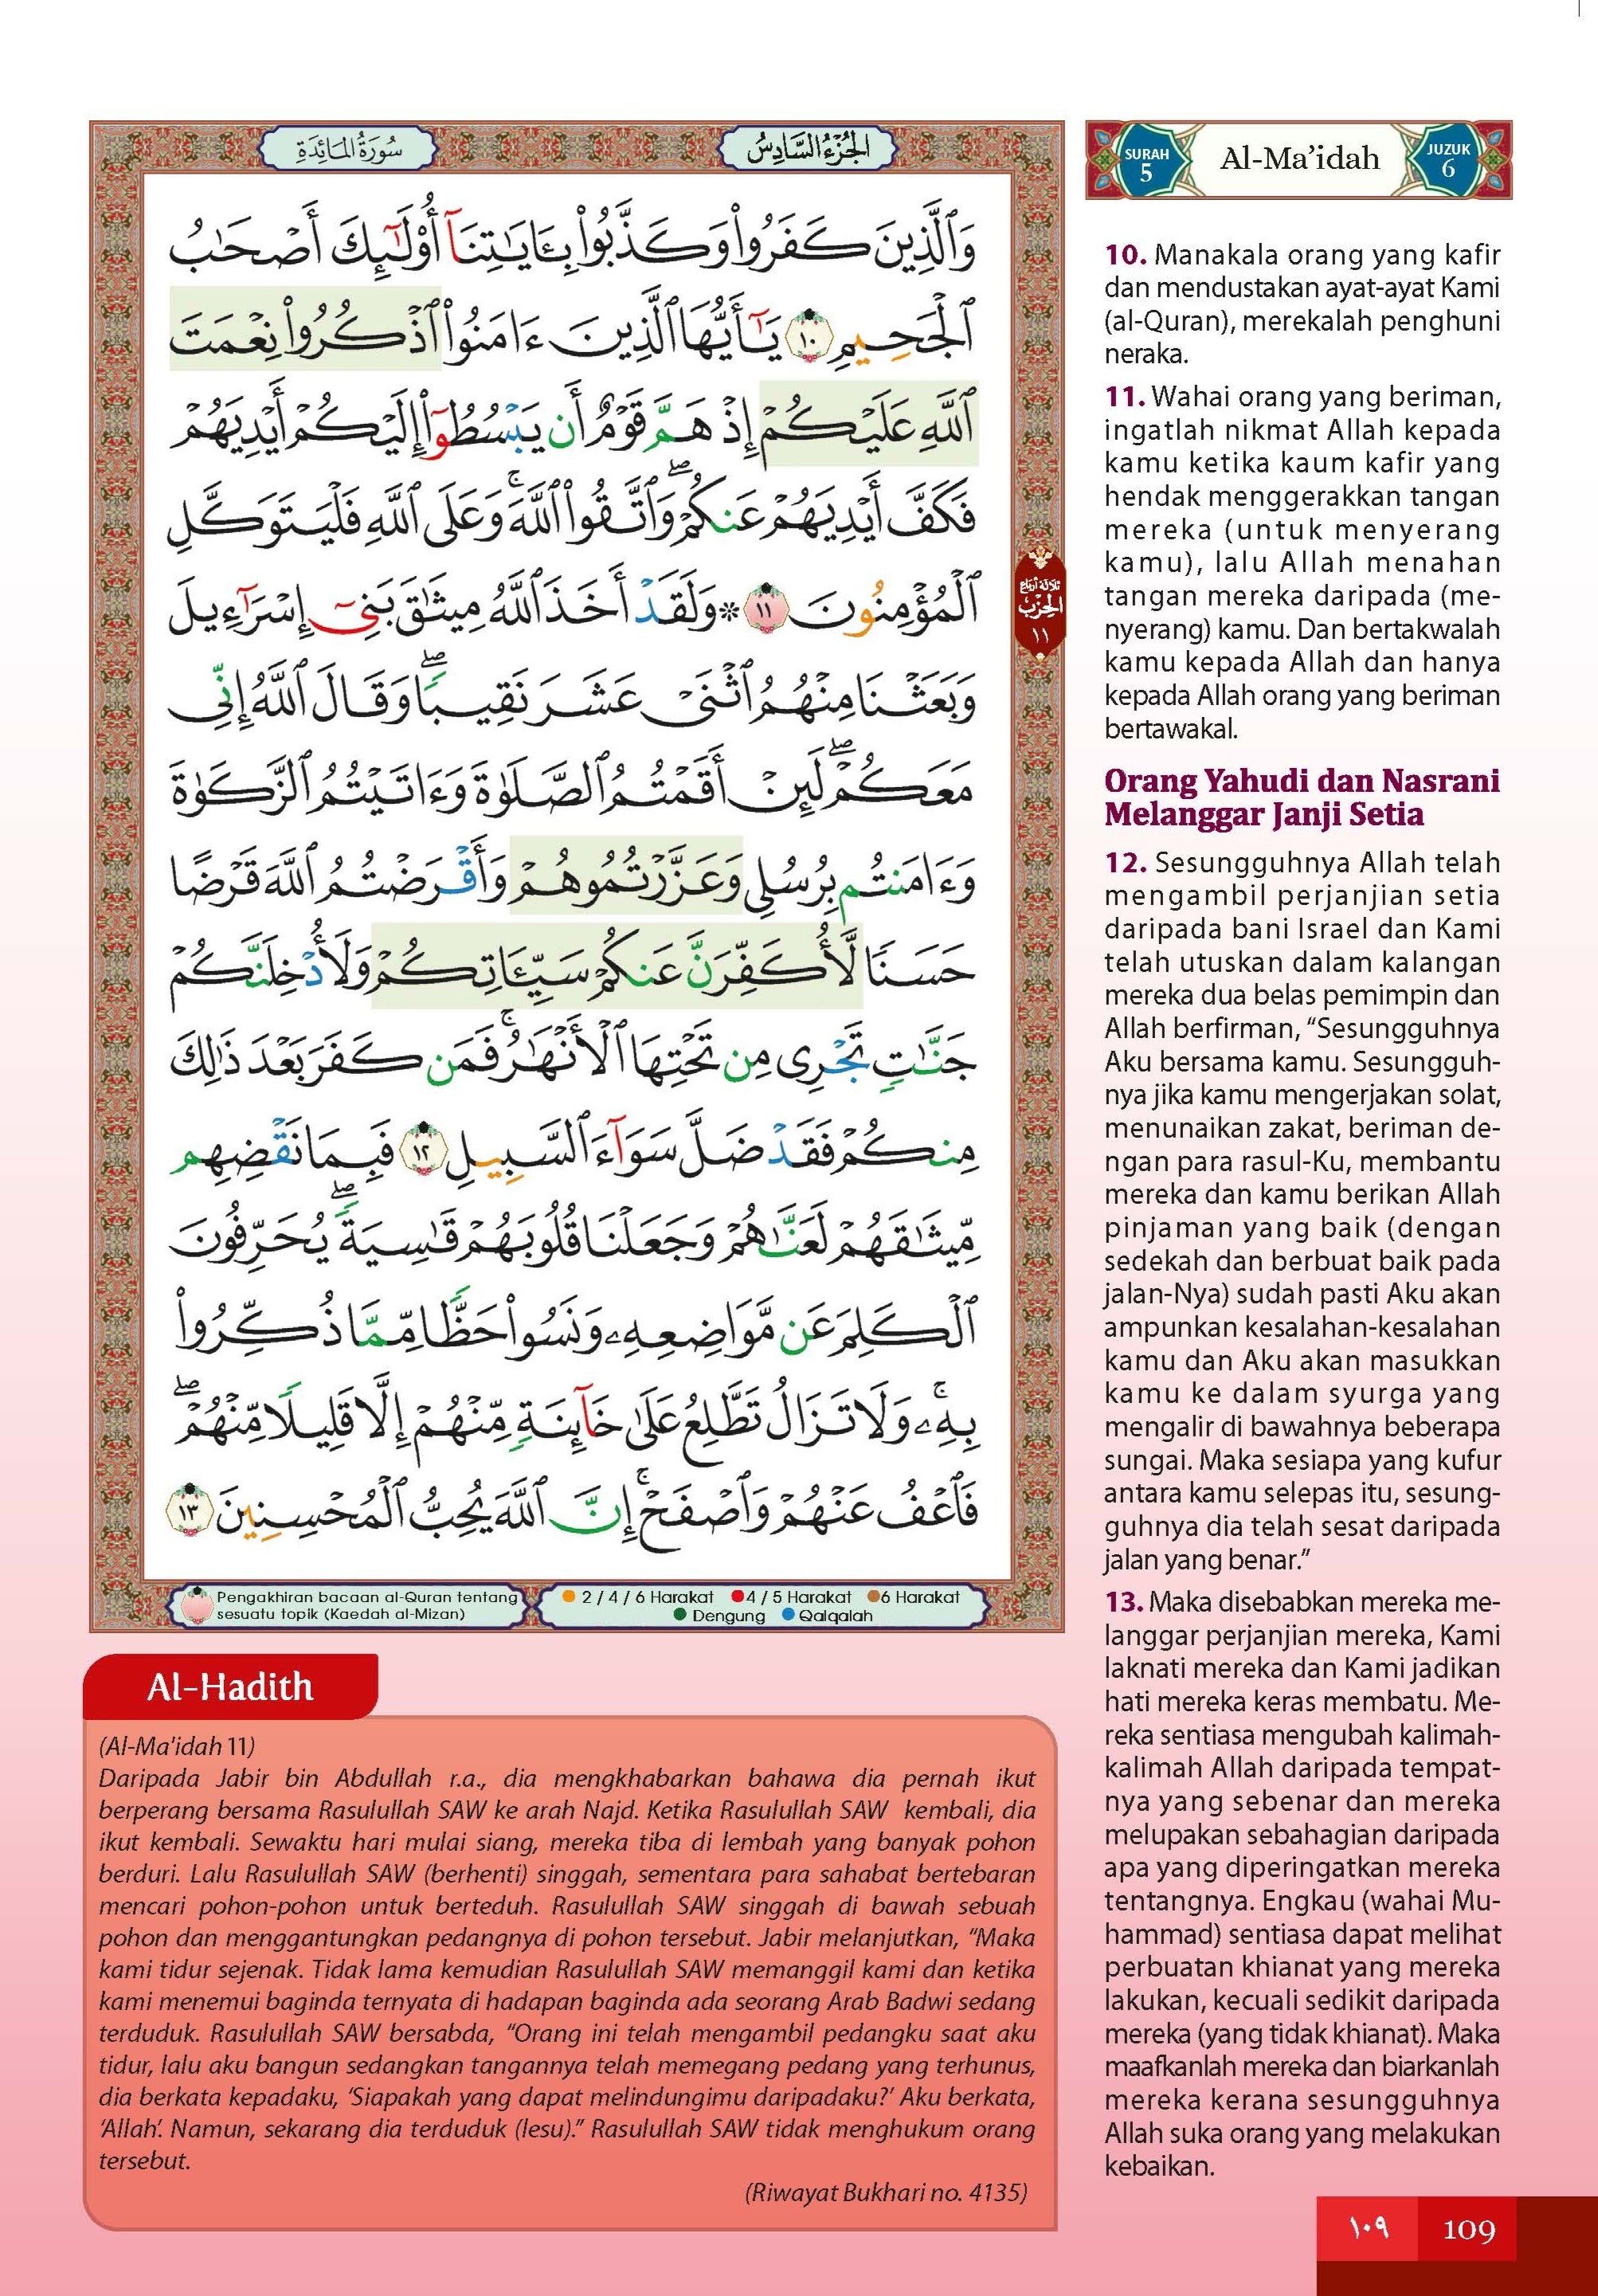 سُورَةُ المَائِدَةِ
الجُزْءُ السَّادِسُ
وَٱلَّذِينَ كَفَرُوا۟ وَكَذَّبُوا۟ بِـَٔايَـٰتِنَآ أُو۟لَـٰٓئِكَ أَصْحَـٰبُ
ٱلْجَحِيمِ ١٠ يَـٰٓأَيُّهَا ٱلَّذِينَ ءَامَنُوا۟ ٱذْكُرُوا۟ نِعْمَتَ
ٱللَّهِ عَلَيْكُمْ إِذْ هَمَّ قَوْمٌ أَن يَبْسُطُوٓا۟ إِلَيْكُمْ أَيْدِيَهُمْ
فَكَفَّ أَيْدِيَهُمْ عَنكُمْ ۖ وَٱتَّقُوا۟ ٱللَّهَ ۚ وَعَلَى ٱللَّهِ فَلْيَتَوَكَّلِ
ٱلْمُؤْمِنُونَ ١١ * وَلَقَدْ أَخَذَ ٱللَّهُ مِيثَـٰقَ بَنِىٓ إِسْرَٰٓءِيلَ
وَبَعَثْنَا مِنْهُمُ ٱثْنَىْ عَشَرَ نَقِيبًا ۖ وَقَالَ ٱللَّهُ إِنِّى
مَعَكُمْ ۖ لَئِنْ أَقَمْتُمُ ٱلصَّلَوٰةَ وَءَاتَيْتُمُ ٱلزَّكَوٰةَ
وَءَامَنتُم بِرُسُلِى وَعَزَّرْتُمُوهُمْ وَأَقْرَضْتُمُ ٱللَّهَ قَرْضًا
حَسَنًا لَّأُكَفِّرَنَّ عَنكُمْ سَيِّـَٔاتِكُمْ وَلَأُدْخِلَنَّكُمْ
جَنَّـٰتٍ تَجْرِى مِن تَحْتِهَا ٱلْأَنْهَـٰرُ ۚ فَمَن كَفَرَ بَعْدَ ذَٰلِكَ
مِنكُمْ فَقَدْ ضَلَّ سَوَآءَ ٱلسَّبِيلِ ١٢ فَبِمَا نَقْضِهِم
مِّيثَـٰقَهُمْ لَعَنَّـٰهُمْ وَجَعَلْنَا قُلُوبَهُمْ قَـٰسِيَةً ۖ يُحَرِّفُونَ
ٱلْكَلِمَ عَن مَّوَاضِعِهِۦ ۙ وَنَسُوا۟ حَظًّا مِّمَّا ذُكِّرُوا۟
بِهِۦ ۚ وَلَا تَزَالُ تَطَّلِعُ عَلَىٰ خَآئِنَةٍ مِّنْهُمْ إِلَّا قَلِيلًا مِّنْهُمْ ۖ
فَٱعْفُ عَنْهُمْ وَٱصْفَحْ ۚ إِنَّ ٱللَّهَ يُحِبُّ ٱلْمُحْسِنِينَ ١٣
ثلاثة أرباع
الحزب
١١
Pengakhiran bacaan al-Quran tentang
sesuatu topik (Kaedah al-Mizan)
2 / 4 / 6 Harakat 4 / 5 Harakat 6 Harakat
Dengung Qalqalah
SURAH
5
Al-Ma’idah
JUZUK
6
10. Manakala orang yang kafir
dan mendustakan ayat-ayat Kami
(al-Quran), merekalah penghuni
neraka.
11. Wahai orang yang beriman,
ingatlah nikmat Allah kepada
kamu ketika kaum kafir yang
hendak menggerakkan tangan
mereka (untuk menyerang
kamu), lalu Allah menahan
tangan mereka daripada (me-
nyerang) kamu. Dan bertakwalah
kamu kepada Allah dan hanya
kepada Allah orang yang beriman
bertawakal.
Orang Yahudi dan Nasrani
Melanggar Janji Setia
12. Sesungguhnya Allah telah
mengambil perjanjian setia
daripada bani Israel dan Kami
telah utuskan dalam kalangan
mereka dua belas pemimpin dan
Allah berfirman, “Sesungguhnya
Aku bersama kamu. Sesungguh-
nya jika kamu mengerjakan solat,
menunaikan zakat, beriman de-
ngan para rasul-Ku, membantu
mereka dan kamu berikan Allah
pinjaman yang baik (dengan
sedekah dan berbuat baik pada
jalan-Nya) sudah pasti Aku akan
ampunkan kesalahan-kesalahan
kamu dan Aku akan masukkan
kamu ke dalam syurga yang
mengalir di bawahnya beberapa
sungai. Maka sesiapa yang kufur
antara kamu selepas itu, sesung-
guhnya dia telah sesat daripada
jalan yang benar.”
13. Maka disebabkan mereka me-
langgar perjanjian mereka, Kami
laknati mereka dan Kami jadikan
hati mereka keras membatu. Me-
reka sentiasa mengubah kalimah-
kalimah Allah daripada tempat-
nya yang sebenar dan mereka
melupakan sebahagian daripada
apa yang diperingatkan mereka
tentangnya. Engkau (wahai Mu-
hammad) sentiasa dapat melihat
perbuatan khianat yang mereka
lakukan, kecuali sedikit daripada
mereka (yang tidak khianat). Maka
maafkanlah mereka dan biarkanlah
mereka kerana sesungguhnya
Allah suka orang yang melakukan
kebaikan.
Al-Hadith
(Al-Ma'idah 11)
Daripada Jabir bin Abdullah r.a., dia mengkhabarkan bahawa dia pernah ikut
berperang bersama Rasulullah SAW ke arah Najd. Ketika Rasulullah SAW kembali, dia
ikut kembali. Sewaktu hari mulai siang, mereka tiba di lembah yang banyak pohon
berduri. Lalu Rasulullah SAW (berhenti) singgah, sementara para sahabat bertebaran
mencari pohon-pohon untuk berteduh. Rasulullah SAW singgah di bawah sebuah
pohon dan menggantungkan pedangnya di pohon tersebut. Jabir melanjutkan, “Maka
kami tidur sejenak. Tidak lama kemudian Rasulullah SAW memanggil kami dan ketika
kami menemui baginda ternyata di hadapan baginda ada seorang Arab Badwi sedang
terduduk. Rasulullah SAW bersabda, “Orang ini telah mengambil pedangku saat aku
tidur, lalu aku bangun sedangkan tangannya telah memegang pedang yang terhunus,
dia berkata kepadaku, ‘Siapakah yang dapat melindungimu daripadaku?’ Aku berkata,
‘Allah’. Namun, sekarang dia terduduk (lesu).” Rasulullah SAW tidak menghukum orang
tersebut.
(Riwayat Bukhari no. 4135)
١٠٩ 109